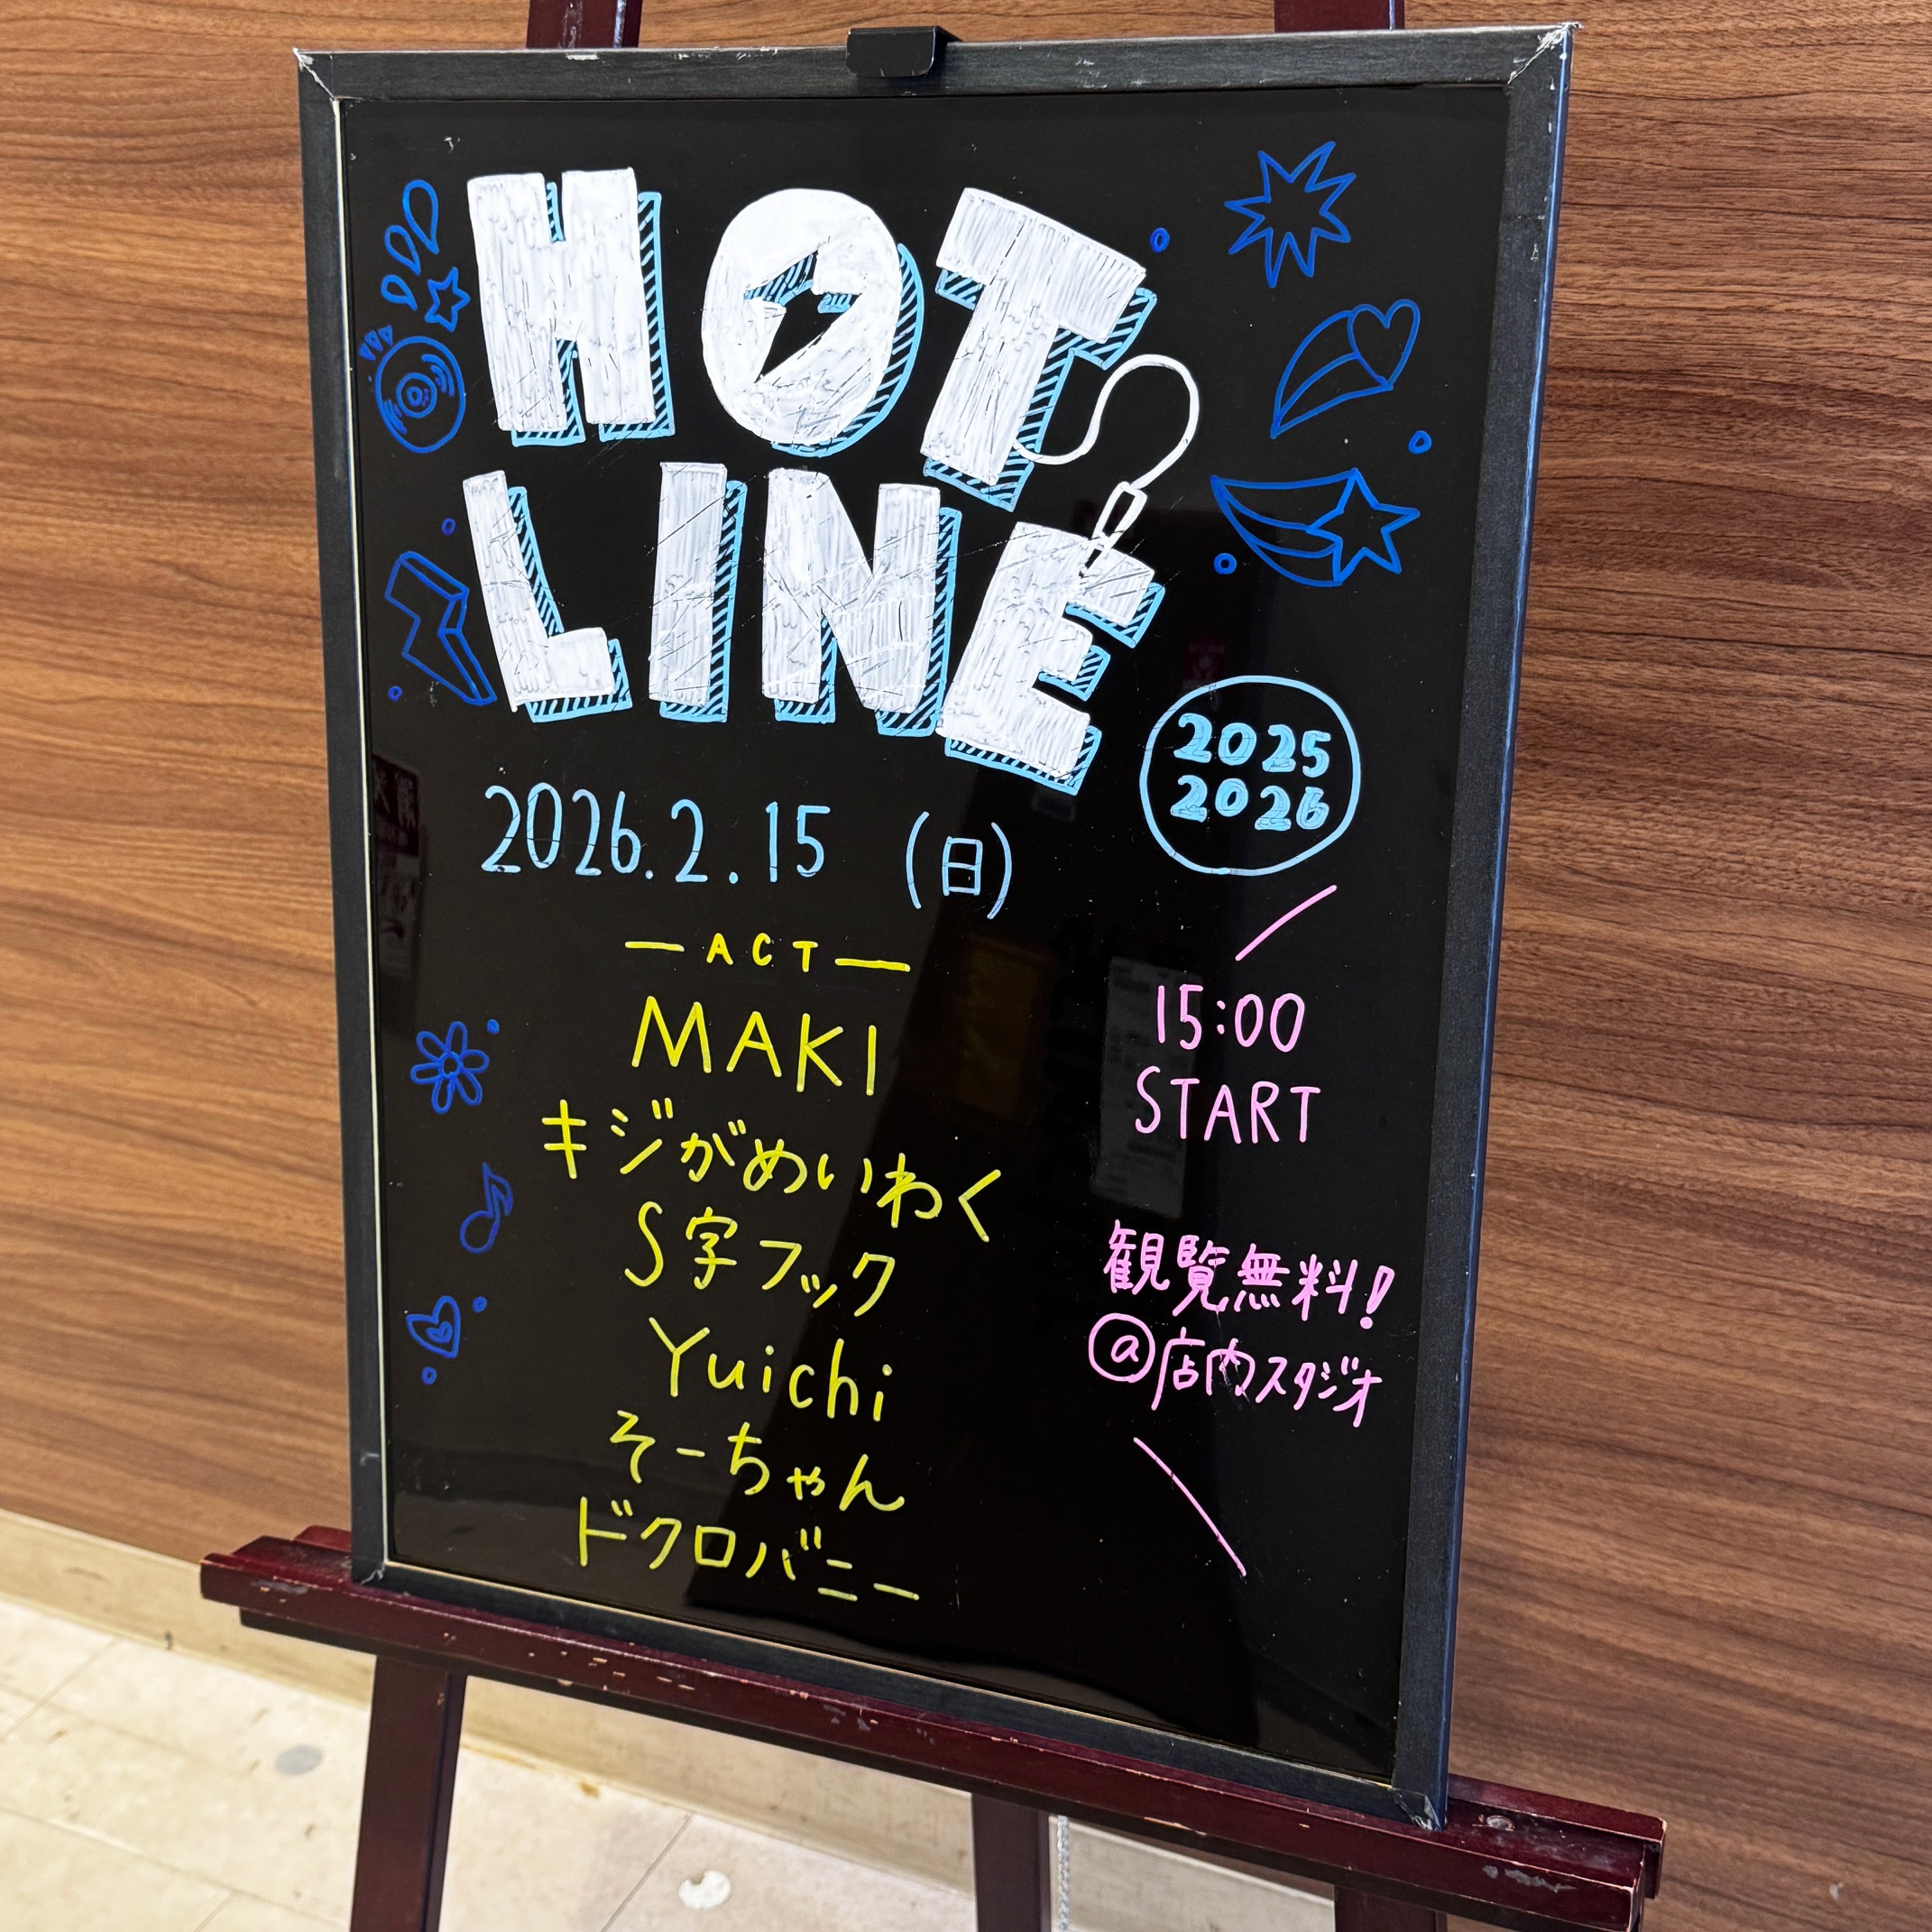 HOT
LINE
2025
2026
2026.2.15 (日)
ACT
MAKI
キジがめいわく
S字フック
Yuichi
そーちゃん
ドクロバニー
15:00
START
観覧無料!
@店内スタジオ